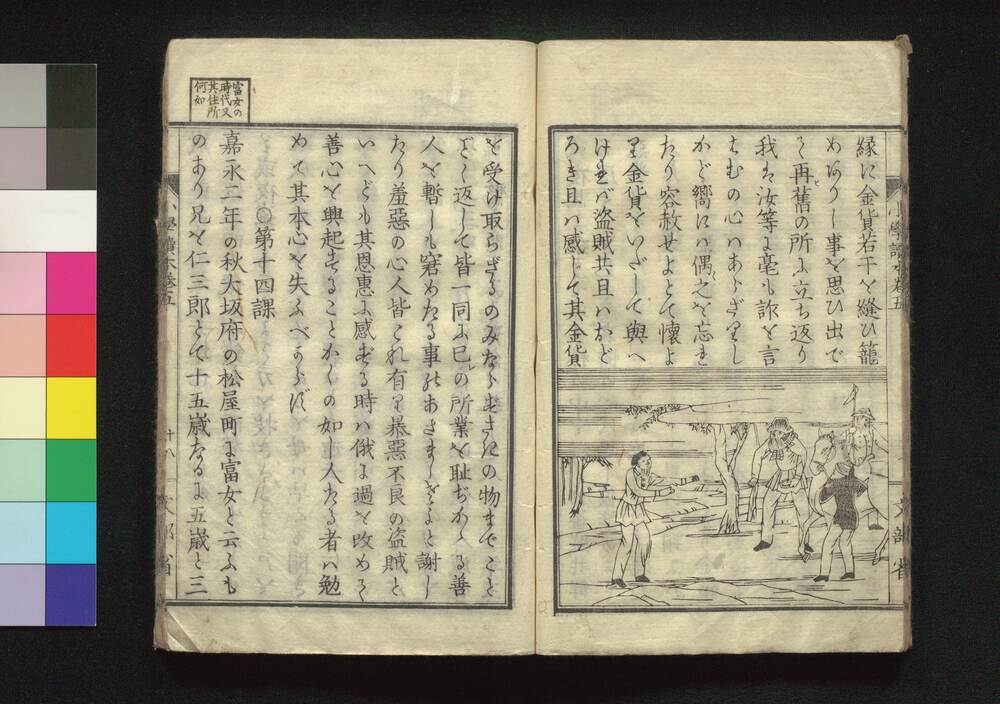 縁に金貨若干を縫ひ籠
めありし事を思ひ出で
て再舊の所に立ち返り
我は汝等に毫も詐を言
はむの心はあらざりし
かど嚮には偶之を忘れ
たり容赦せよとて懐よ
り金貨をいだして與へ
ければ盗賊共且はおど
ろき且は感じて其金貨
小學讀本卷五
文部省
を受け取らざるのみならずさきの物までことごと
く返して皆一同に己の所業を耻ぢかかる善
人を暫しも窘めたる事のあさましさよと謝し
たり羞惡の心人皆これ有り暴惡不良の盗賊と
いへども其恩惠に感ずる時は俄に過を改める
善心を興起することかくの如し人たる者は勉
めて其本心を失ふべからず
○第十四課
嘉永二年の秋大坂府の松屋町に富女と云ふも
のあり兄を仁三郎とて十五歳なるに五歳と三
富女の
時代又
其住所
何如
小學讀本卷五
十八
文部省